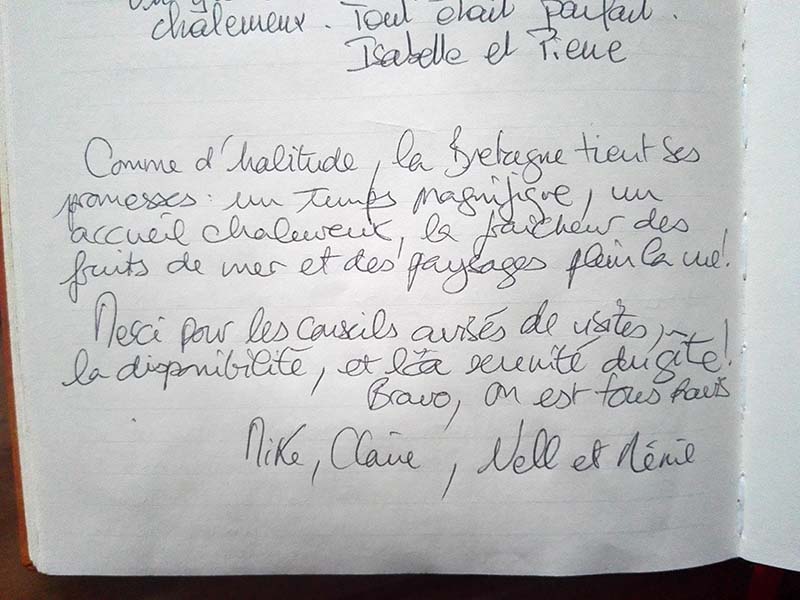 chaleureux. Tout était parfait.
Isabelle et Pierre
Comme d'habitude, la Bretagne tient ses
promesses : un temps magnifique, un
accueil chaleureux, la fraîcheur des
fruits de mer et des paysages plein la vue !
Merci pour les conseils avisés de visites,
la disponibilité, et la serenité du gîte !
Bravo, on est tous ravis
Mike, Claire, Nell et